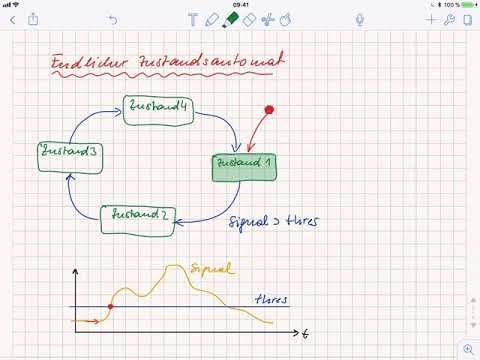 09:41
100 %
Endlicher Zustandsautomat
Zustand 4
Zustand 3
Zustand 1
Zustand 2
Signal > thres
Signal
thres
t